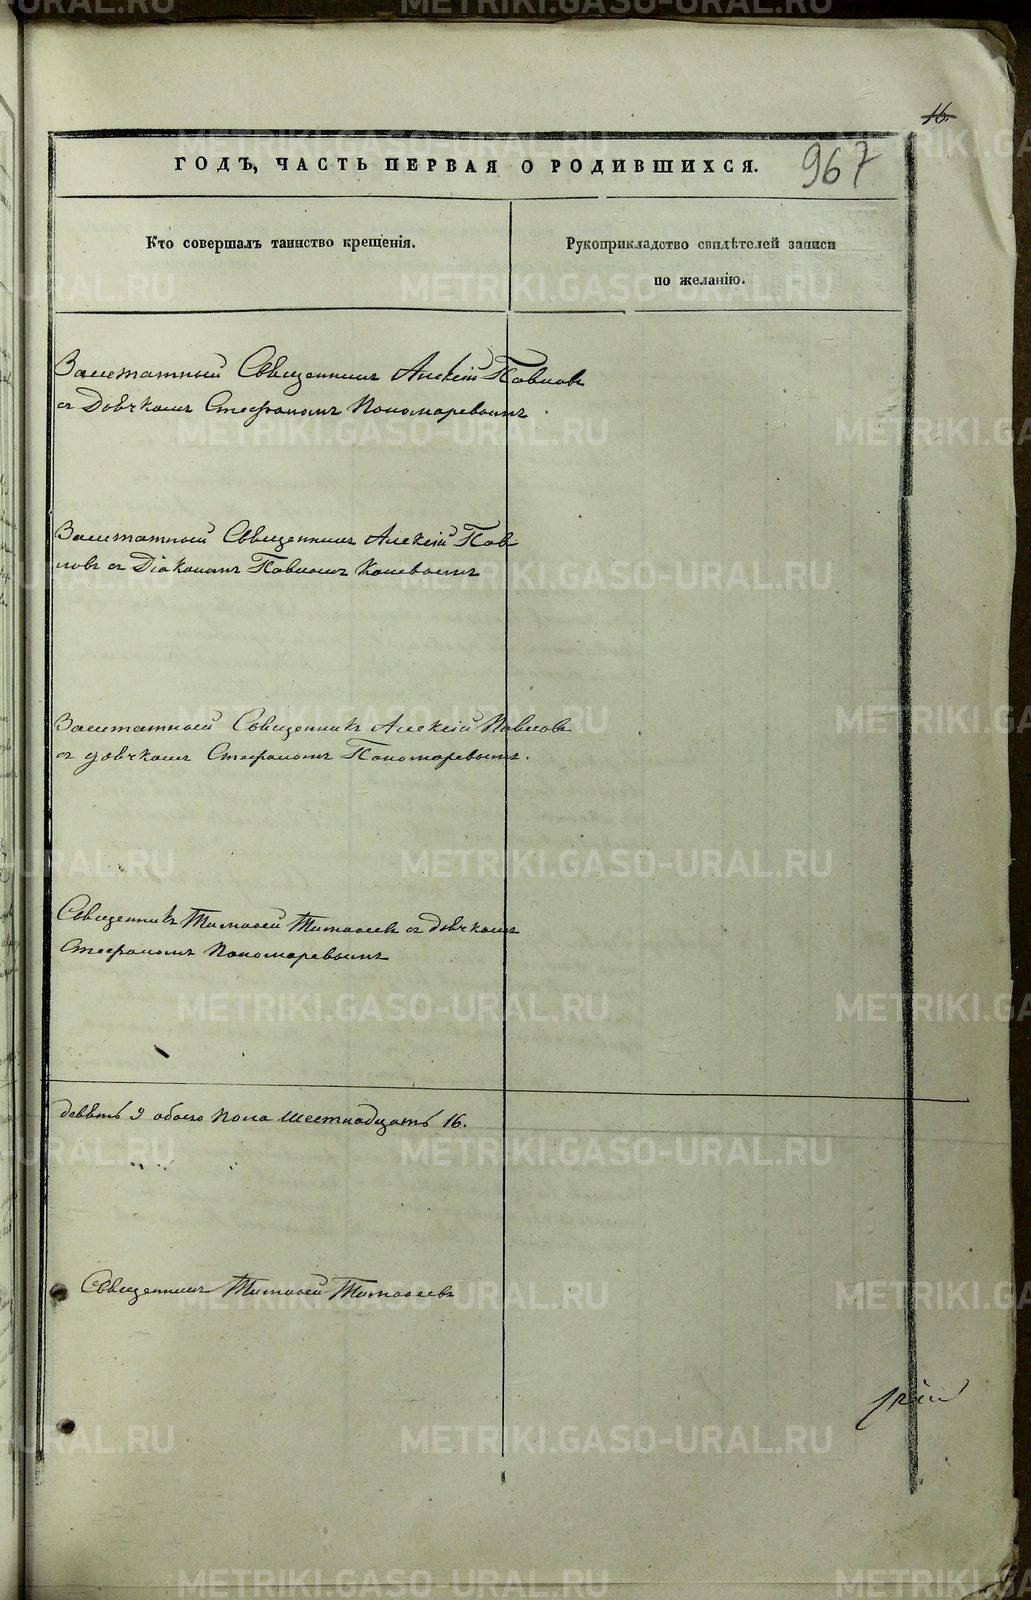 16.
ГОДЪ, ЧАСТЬ ПЕРВАЯ О РОДИВШИХСЯ.
967
Кто совершалъ таинство крещенія.
Рукоприкладство свидѣтелей записи
по желанію.
Заштатный Священникъ Алексій Павловъ
съ Дьячкомъ Стефаномъ Пономаревымъ.
Заштатный Священникъ Алексій Пав
ловъ съ Діакономъ Павломъ
Заштатный Священникъ Алексій Павловъ
съ дьячкомъ Стефаномъ Пономаревымъ.
Священникъ Тимофей Тимофеевъ съ дьячкомъ
Стефаномъ Пономаревымъ
девять 9 обоего пола шестнадцать 16.
Священникъ Тимофей Тимофеевъ
METRIKI.GASO-URAL.RU